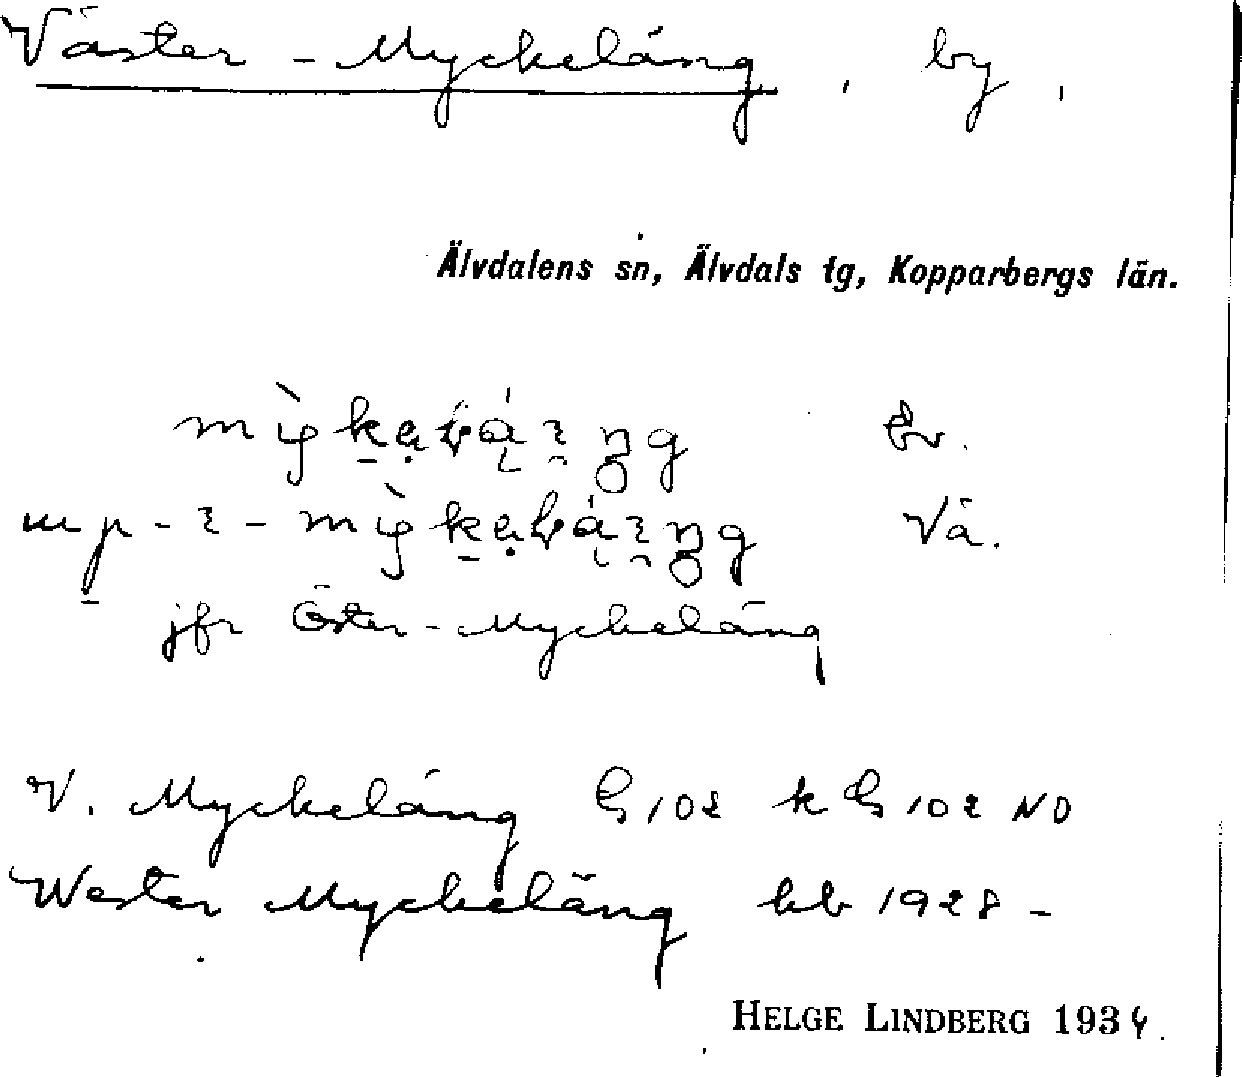 Väster-Myckeläng, by,
Älvdalens sn, Älvdals tg, Kopparbergs län.
Ev.
Vå.
jfr Öster-Myckeläng
V. Myckeläng G 102 k G 102 NO
Wester Myckeläng kb 1928-
HELGE LINDBERG 1934.